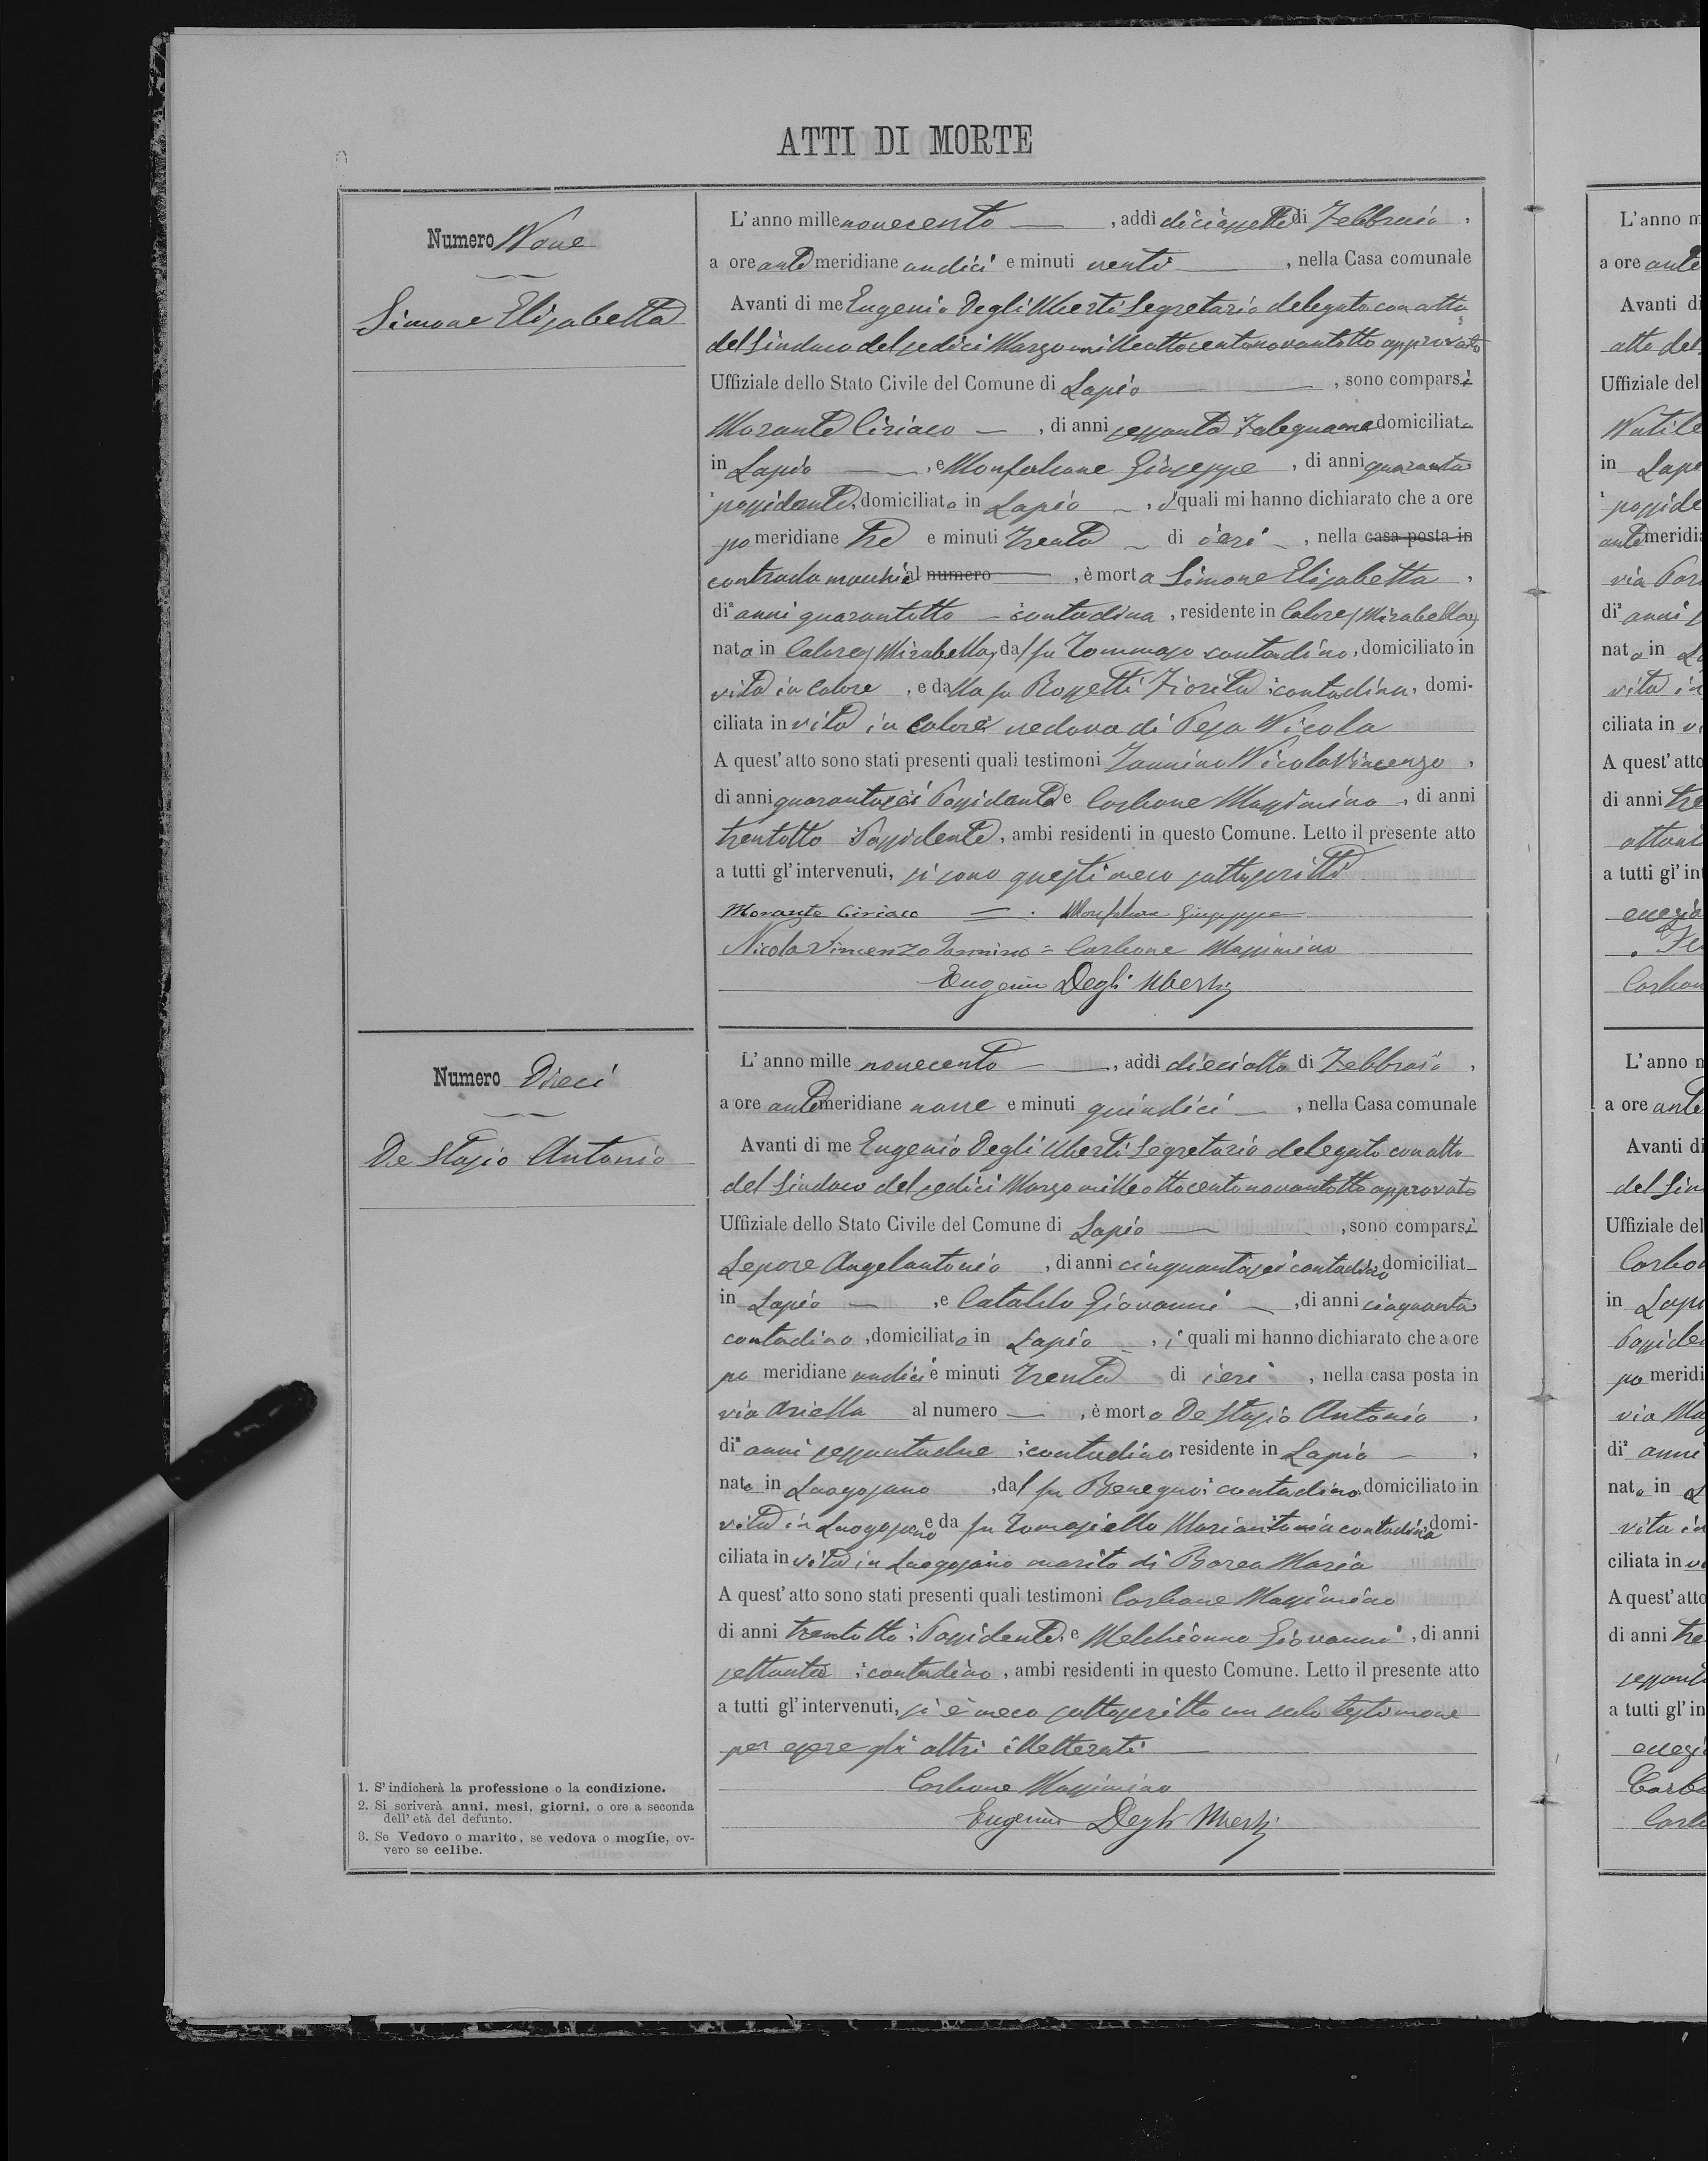 ATTI DI MORTE
Numero Nove
Simone Elisabetta
L'anno millenovecento —, addì diciassette di Febbraio,
a ore antemeridiane undici e minuti venti —, nella Casa comunale
Avanti di me Eugenio Degli Uberti Segretario delegato con atto
del Sindaco del sedici Marzo milleottocentonovantotto approvato
Uffiziale dello Stato Civile del Comune di Lapio —, sono comparsi
Morante Ciriaco —, di anni sessanta falegname domiciliato
in Lapio —, e Monfalcone Giuseppe, di anni quaranta
possidente, domiciliato in Lapio —, i quali mi hanno dichiarato che a ore
pomeridiane tre e minuti trenta — di ieri —, nella casa posta in
contrada macchia al numero —, è morta Simone Elisabetta,
di² anni quarantotto — contadina, residente in Calore (Mirabella)
nata in Calore (Mirabella) dal fu Tommaso contadino, domiciliato in
vita in Calore, e dalla fu Rossetti Fiorita contadina, domi-
ciliata in vita in Calore vedova di Pesa Nicola
A quest'atto sono stati presenti quali testimoni Iannino Nicola Vincenzo,
di anni quarantasei Possidente e Carbone Massimino, di anni
trentotto Possidente, ambi residenti in questo Comune. Letto il presente atto
a tutti gl'intervenuti, si sono questi meco sottoscritti
Morante Ciriaco = . Monfalcone Giuseppe
Nicola Vincenzo Iannino = Carbone Massimino
Eugenio Degli Uberti
Numero Dieci
De Stasio Antonio
L'anno mille novecento —, addì dieciotto di Febbraio,
a ore antemeridiane nove e minuti quindici —, nella Casa comunale
Avanti di me Eugenio Degli Uberti Segretario delegato con atto
del Sindaco del sedici Marzo milleottocentonovantotto approvato
Uffiziale dello Stato Civile del Comune di Lapio —, sono comparsi
Lepore Angelantonio, di anni cinquantasei contadino domiciliat—
in Lapio —, e Cataldo Giovanni —, di anni cinquanta
contadino, domiciliato in Lapio —, i quali mi hanno dichiarato che a ore
pomeridiane undici e minuti trenta di ieri, nella casa posta in
via Ariella al numero —, è morto De Stasio Antonio,
di² anni sessantadue contadino residente in Lapio —,
nato in Luogosano, dal fu Benegno contadino, domiciliato in
vita in Luogosano e da fu Tomasiello Mariantonia contadina domi-
ciliata in vita in Luogosano marito di Borea Maria
A quest'atto sono stati presenti quali testimoni Carbone Massimino
di anni trentotto, Possidente, e Melchionno Giovanni, di anni
settanta, contadino, ambi residenti in questo Comune. Letto il presente atto
a tutti gl'intervenuti, si è meco sottoscritto un solo testimone
per essere gli altri illetterati —
Carbone Massimino
Eugenio Degli Uberti
1. S'indicherà la professione o la condizione.
2. Si scriverà anni, mesi, giorni, o ore a seconda
dell'età del defunto.
3. Se Vedovo o marito, se vedova o moglie, ov-
vero se celibe.
L'anno m
a ore ante
Avanti di
atto del
Uffiziale del
in Lapi
posside
antemeridia
via
di² anni
nato in
vita in
ciliata in v
A quest'atto
di anni tre
a tutti gl'in
Carbon
L'anno m
a ore ante
Avanti di
del Sin
Uffiziale del
Carbon
in Lapi
Posside
pomeridi
via Ma
di² anni
nato in
vita in
ciliata in v
A quest'atto
di anni tre
sessant
a tutti gl'in
Carbo
Carb